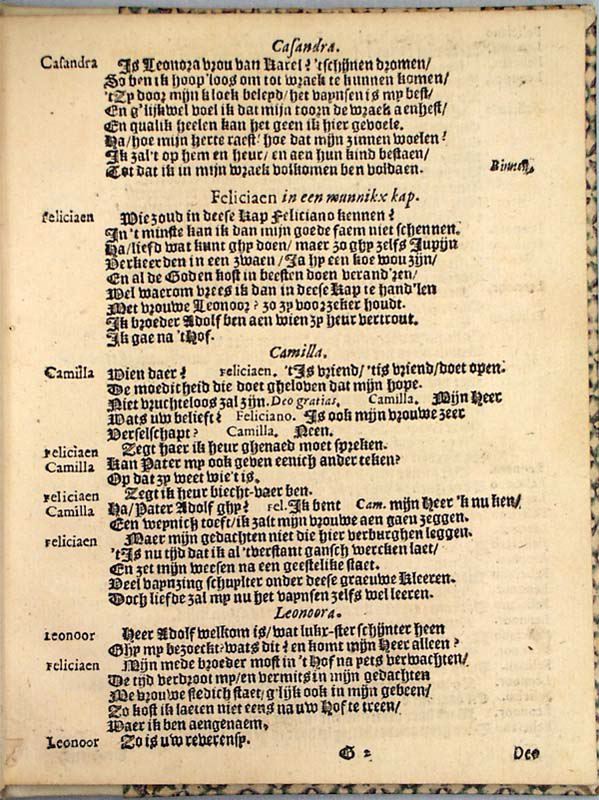 Casandra.
Casandra Is Leonora vrou van Karel? 'tschijnen dromen/
So ben ik hoop'loos om tot wraek te kunnen komen/
'tZy door mijn kloek beleyd/ het vaynsen is my best/
En g'lijkwel voel ik dat mijn toorn de wraek aenhest/
En qualik heelen kan het geen ik hier gevoele.
Ha/ hoe mijn herte raest! hoe dat mijn zinnen woelen!
Ik zal't op hem en heur/ en aen hun kind bestaen/
Tot dat ik in mijn wraek volkomen ben voldaen. Binnen.
Feliciaen in een munnikx kap.
Feliciaen Wie zoud in deese kap Feliciano kennen?
In't minste kan ik dan mijn goede faem niet schennen.
Ha/ liefd wat kunt ghy doen/ maer zo ghy zelfs Jupijn
Verkeerden in een zwaen/ Ja hy een koe wou zijn/
En al de Goden kost in beesten doen verand'ren/
Wel waerom vrees ik dan in deese kap te hand'len
Met vrouwe Leonoor? zo zy voorzeker houdt.
Ik broeder Adolf ben aen wien zy heur vertrout.
Ik gae na 'thof.
Camilla.
Camilla Wien daer? Feliciaen. 'tIs vriend/ 'tis vriend/ doet open.
De moedicheid die doet gheloven dat mijn hope.
Niet vruchteloos zal zijn. Deo gratias. Camilla. Mijn Heer
Wats uw belieft? Feliciano. Is ook mijn vrouwe zeer
Verselschapt? Camilla. Neen.
Feliciaen Zegt haer ik heur ghenaed moet spreken.
Camilla Kan Pater my ook geven eenich ander teken?
Op dat zy weet wie't is.
Feliciaen Zegt ik heur biecht-vaer ben.
Camilla Ha/ Pater Adolf ghy? Fel. Ik bent Cam. mijn Heer 'k nu ken/
Een weynich toeft/ ik zalt mijn vrouwe aen gaen zeggen.
Feliciaen Maer mijn gedachten niet die hier verburghen leggen.
'tIs nu tijd dat ik al 'tverstant gansch wercken laet/
En zet mijn weesen na een geestelike staet.
Veel vaynzing schuylter onder deese graeuwe kleeren.
Doch liefde zal my nu het vaynsen zelfs wel leeren.
Leonoora.
Leonoor Heer Adolf welkom is/ wat lukx-ster schijnter heen
Ghy my bezoeckt? wats dit? en komt mijn Heer alleen?
Feliciaen Mijn mede broeder most in 't Hof na yets verwachten/
De tijd verdroot my/ en vermits in mijn gedachten
Me vrouwe stedich staet/ g'lijk ook in mijn gebeen/
Zo kost ik laeten niet eens na uw Hof te treen/
Waer ik ben aengenaem.
Leonoor Zo is uw reverensy.
G 2 Deo